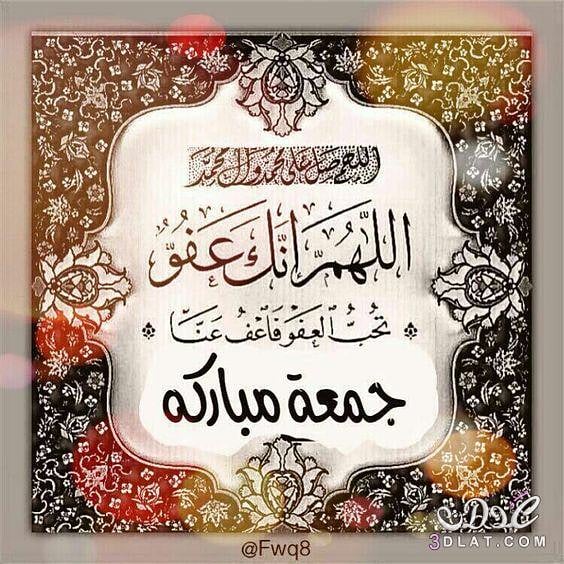 اللهم صل على محمد وال محمد
اللَّهُمَّ إِنَّكَ عَفُوٌّ
تُحِبُّ العَفْوَ فَاعْفُ عَنَّا
جمعة مباركه
@Fwq8
3DLAT.COM